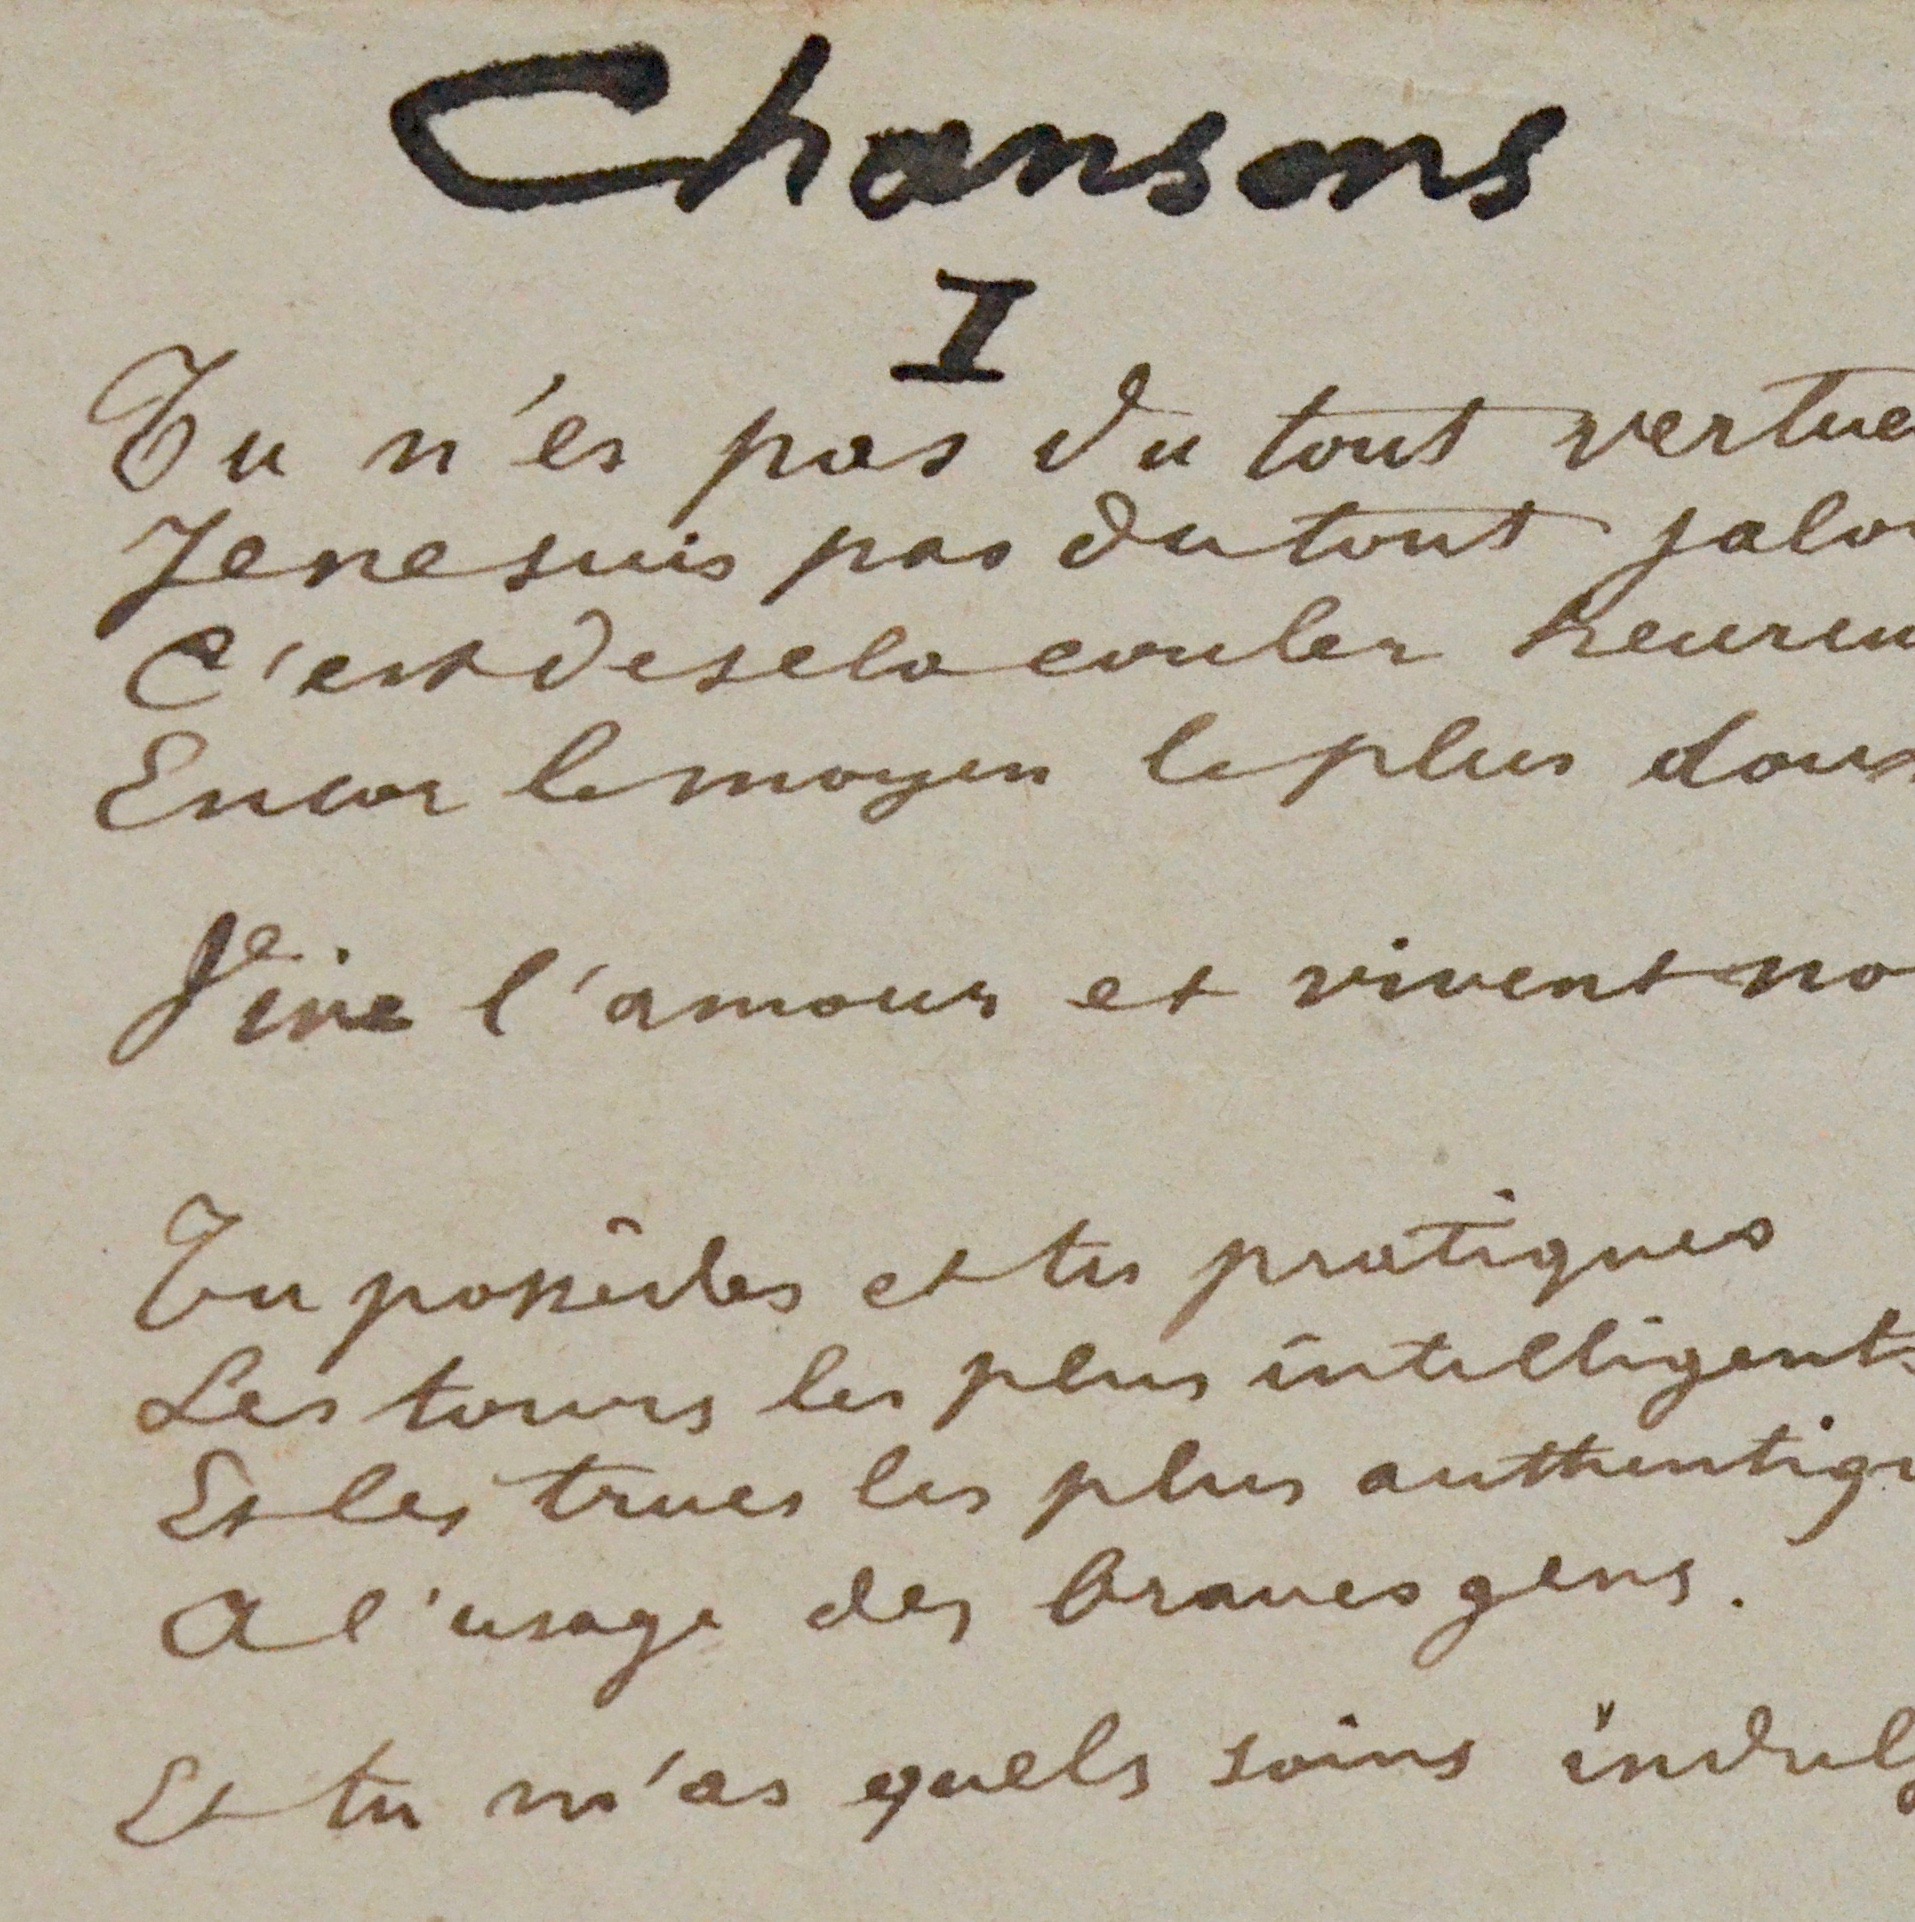 Chansons
I
Tu n'es pas du tout vertue
Je ne suis pas du tout jalou
C'est de se la couler heureu
Encor le moyen le plus doux
Vive l'amour et vivent no
Tu possèdes et tu pratiques
Les tours les plus intelligents
Et les trucs les plus authentiqu
A l'usage des braves gens.
Et tu m'as quels soins indulg